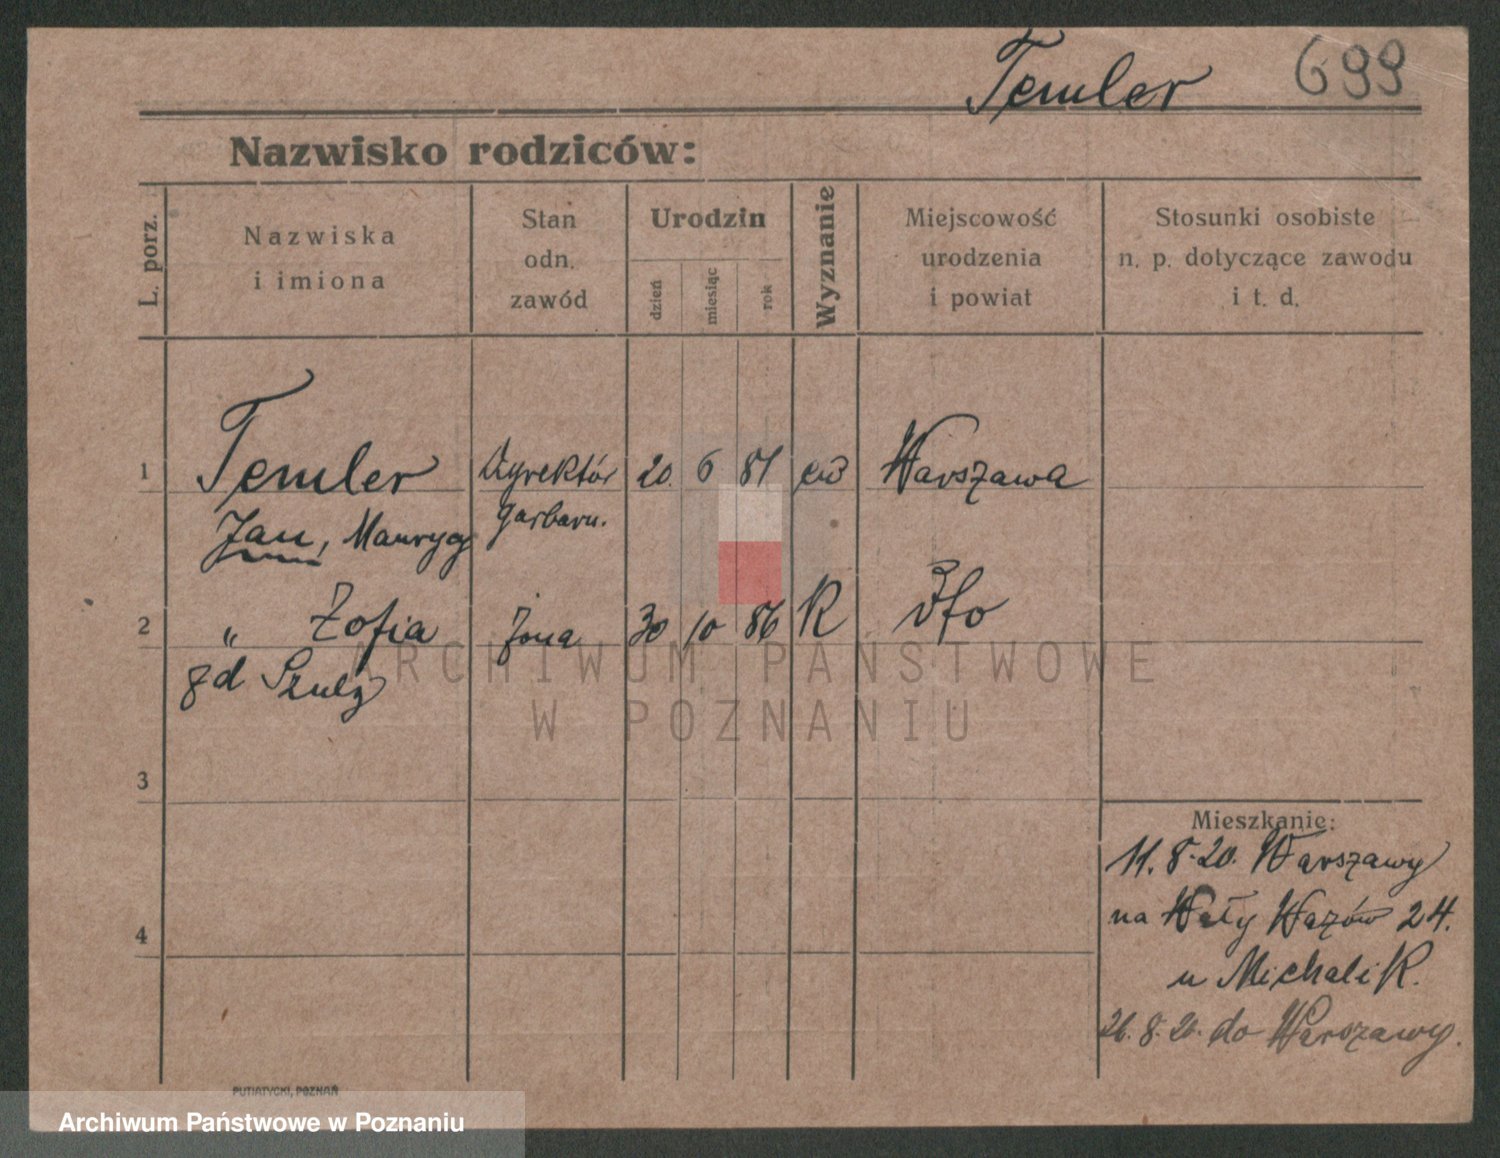 Temler 699
Nazwisko rodziców:
L. porz.
Nazwiska
i imiona
Stan
odn.
zawód
Urodzin
dzień
miesiąc
rok
Wyznanie
Miejscowość
urodzenia
i powiat
Stosunki osobiste
n. p. dotyczące zawodu
i t. d.
1 Temler Dyrektór 20. 6 81 ew Warszawa
Jan, Maurycy garbarn.
2 " Zofia żona 30 10 86 K
zd Szulz
ARCHIWUM PAŃSTWOWE
W POZNANIU
3
Mieszkanie:
11. 8. 20. Warszawy
na Wały Wazów 24.
4
u Michalik.
26. 8. 20. do Warszawy.
PUTIATYCKI, POZNAŃ
Archiwum Państwowe w Poznaniu